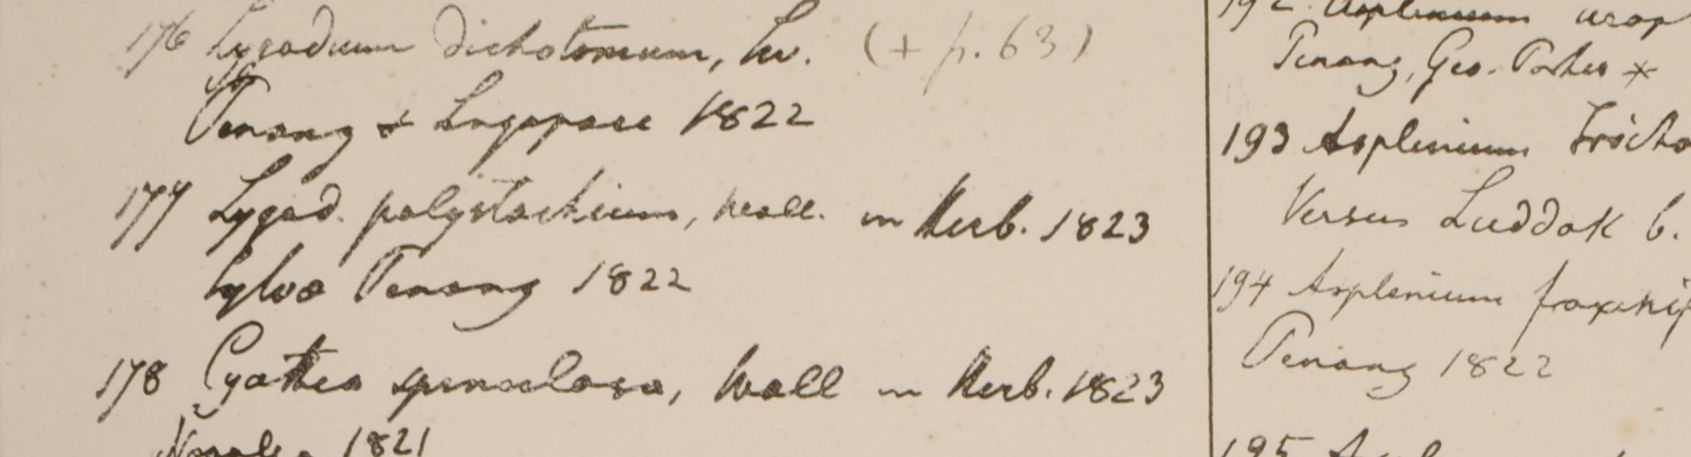 176 Lygodium dichotomum, Sw. (+ p. 63)
Penang & Singapore 1822
177 Lygod. polystachium, Wall. in Herb. 1823
Sylvæ Penang 1822
178 Cyathea spinulosa, Wall in Herb. 1823
1821
192. Asplenium
Penang, Geo. Porter *
193 Asplenium Tricho
Versus Luddak b.
194 Asplenium fraxinif
Penang 1822
195